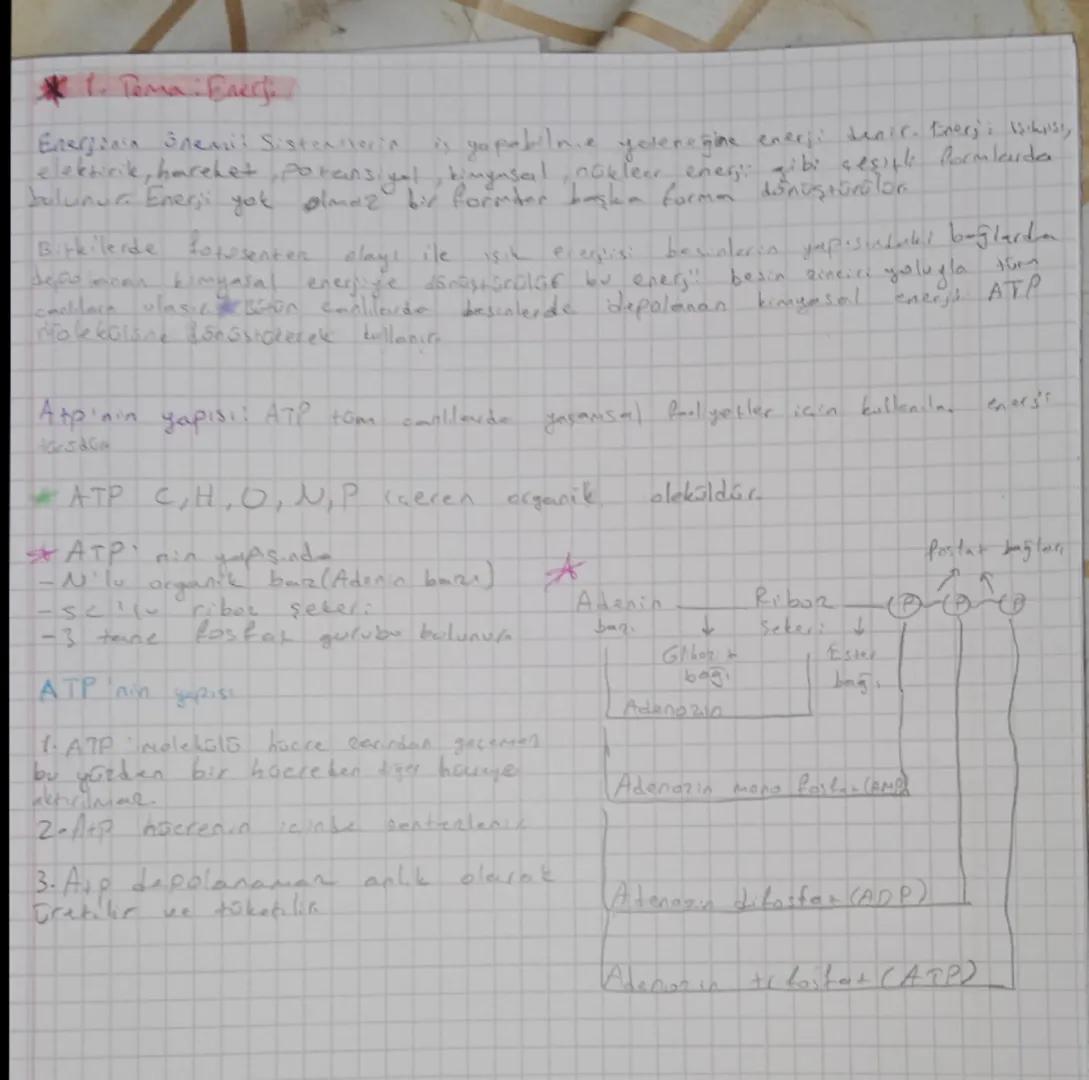 * 1. Tema: Enerji
Enerjinin önemi: Sistemlerin iş yapabilme yeteneğine enerji denir. Enerji ısı, ışık,
elektirik, hareket, potansiyel, kimyasal, nükleer enerji gibi çeşitli formlarda
bulunur. Enerji yok olmaz bir formdan başka forma dönüştürülür
Bitkilerde fotosentez olayı ile ışık enerjisi besinlerin yapısındaki bağlarda
kimyasal enerjiye dönüştürülür bu enerji besin zinciri yoluyla tüm
canlılara ulaşır. Bütün canlılarda besinlerde depolanan kimyasal enerji ATP
molekülüne dönüştürerek kullanır
Atp'nin yapısı: ATP tüm canlılarda yaşamsal faliyetler için kullanılan enerji
ATP C, H, O, N, P içeren organik oleküldür.
* ATP'nin yapısında
- N'lu organik baz (Adenin bazı)
- 5C'lu riboz şekeri
- 3 tane fosfat gurubu bulunur
ATP'nin yapısı
1. ATP molekülü hücre zarından geçemez
bu yüzden bir hücreden diğer hücreye
aktırılmaz.
2. Atp hücrenin içinde sentezlenir
3. Atp depolanamaz anlık olarak
üretilir ve tüketilir
*
fosfat bağları
Adenin Riboz P P P
bazı şekeri
Glikozit Ester
bağı bağı
Adenozin
Adenozin mono fosfat (AMP)
Adenozin difosfat (ADP)
Adenozin tri fosfat (ATP)